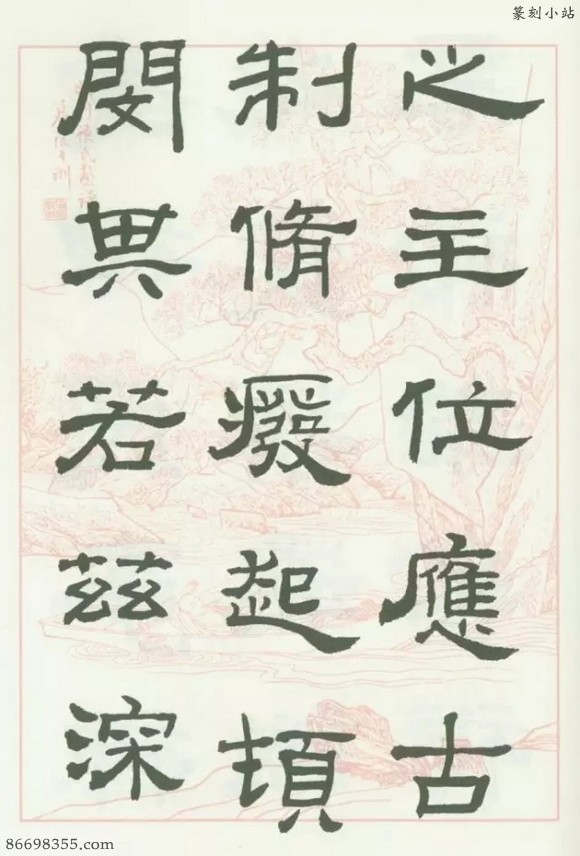 篆刻小站
之主位應古
制脩癈起頓
閔其若茲深
86698355.com